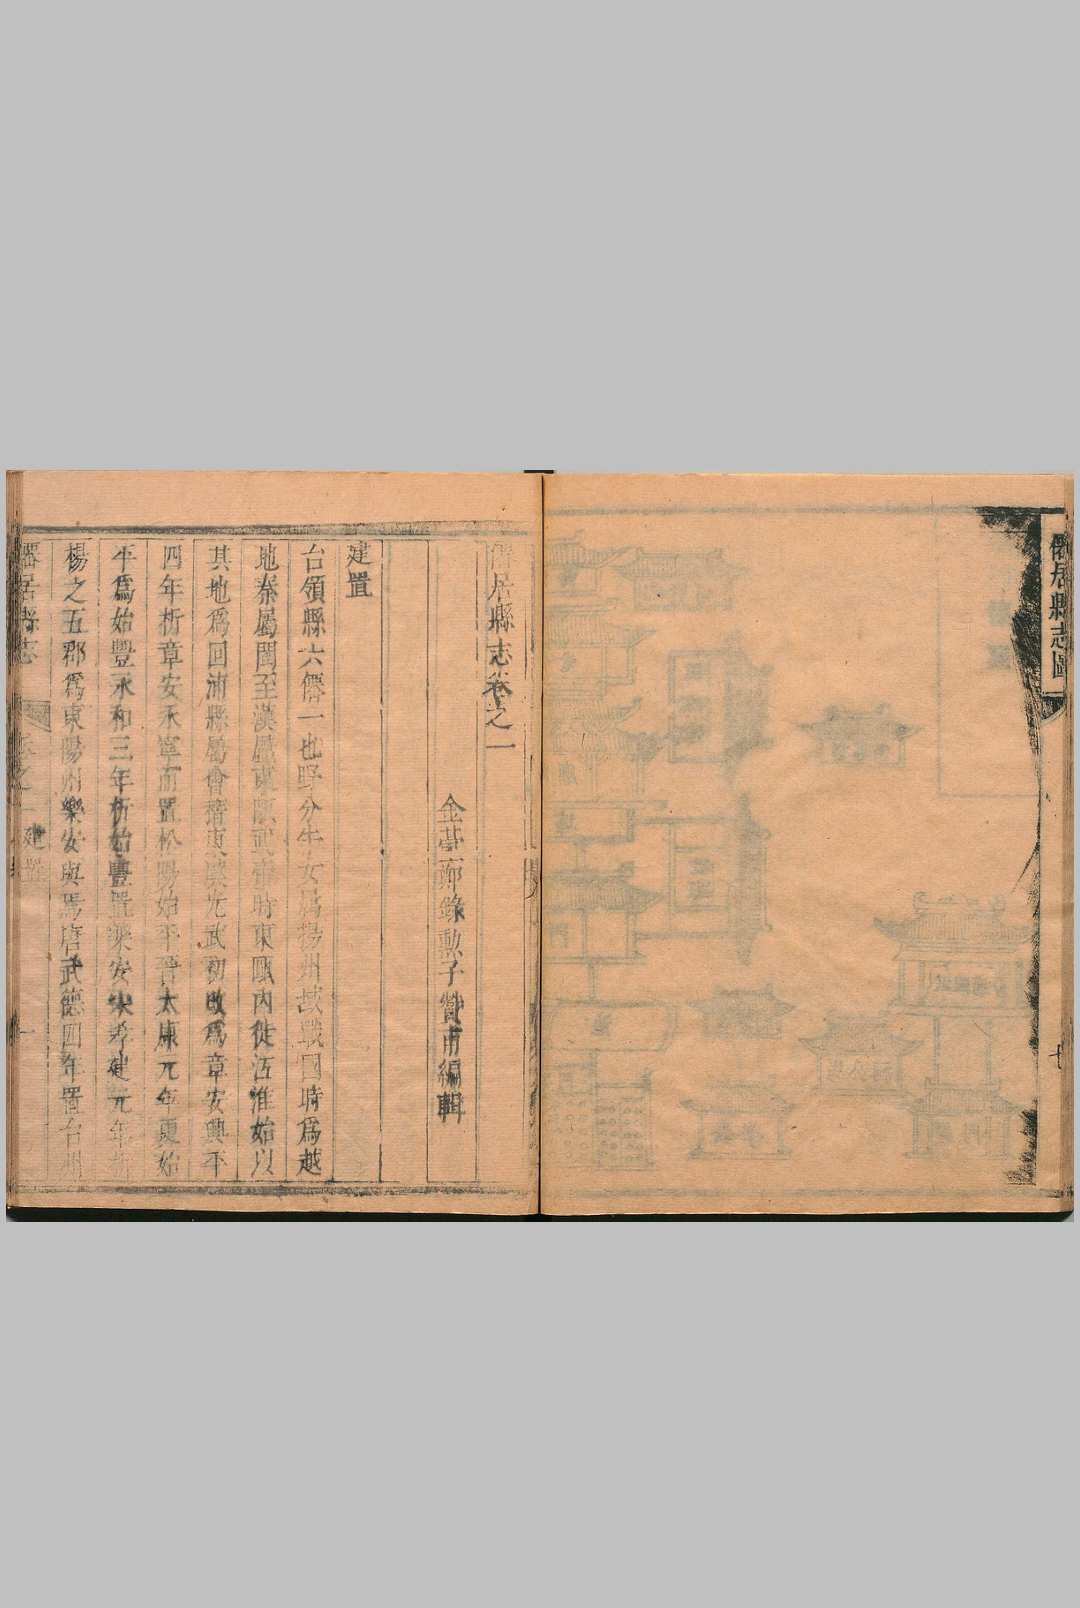 僊居縣志圖
七
僊居縣志卷之一
金臺鄭錄勳子贊甫編輯
建置
台領縣六僊一也野分牛女爲揚州域戰國時爲越
地秦屬閩至漢屬東甌武帝時東甌內徙江淮始以
其地爲回浦縣屬會稽東漢光武初改爲章安興平
四年析章安永寧而置松陽始平晉太康元年更始
平爲始豐永和三年析始豐置樂安梁孝建元年析
楊之五郡爲東陽州樂安與焉唐武德四年置台州
僊居縣志 卷之一 建置 一